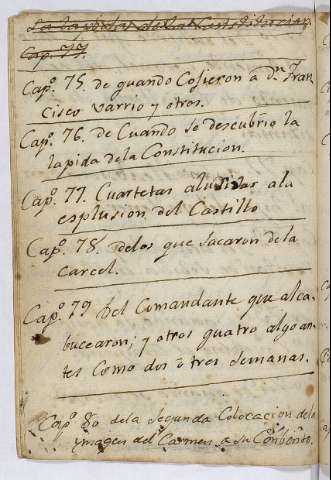 la lapida de la Constitucion
Capº. 77.
Capº. 75. de quando Cojieron a Dn. Fran
cisco Varrio y otros.
Capº. 76. de Cuando se descubrio la
lapida dela Constitucion.
Capº. 77. Cuartetas alusivas ala
esplusion del Castillo
Capº. 78. de los que sacaron dela
Carcel.
Capº. 79 Del Comandante que alca
bucearon; y otros quatro algo an
tes Como dos ō tres semanas.
Capº. 80 dela Segunda Colocacion dela
ymagen del Carmen a su Conbento.